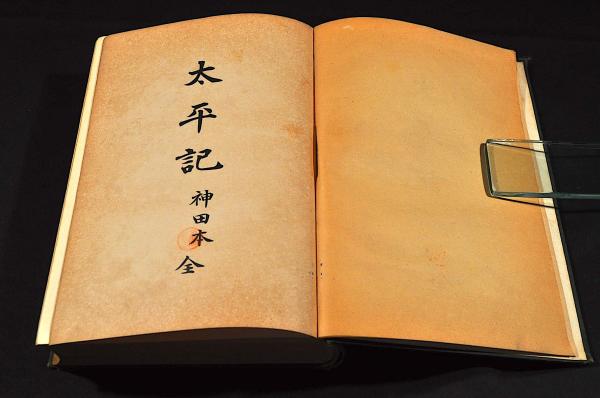 太平記
神田本
全